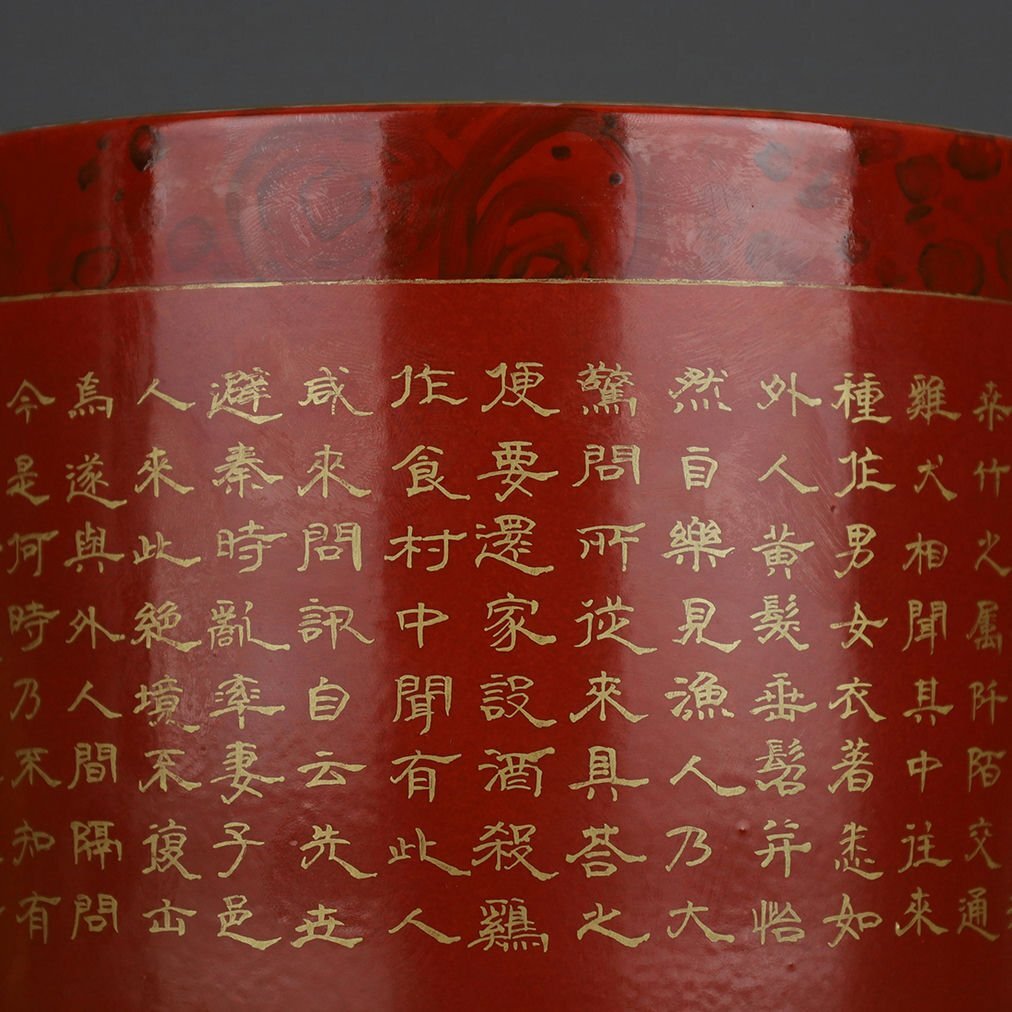 桒竹之属阡陌交通
雞犬相聞其中往來
種作男女衣著悉如
外人黃髮垂髫并怡
然自樂見漁人乃大
驚問所從來具荅之
便要還家設酒殺鷄
作食村中聞有此人
咸來問訊自云先世
避秦時亂率妻子邑
人來此絕境不復出
焉遂與外人間隔問
今是何時乃不知有